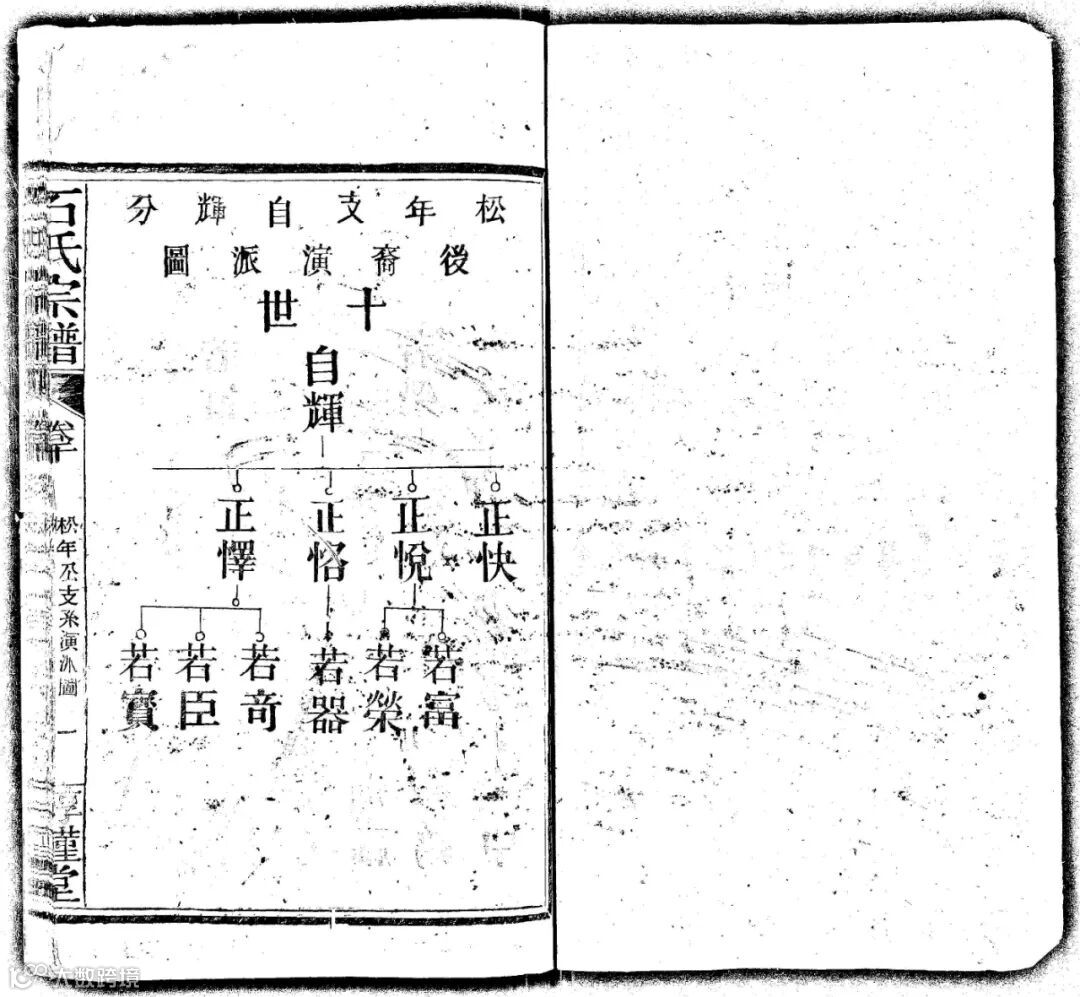 松年支自輝分
後裔演派圖
十世
自輝
正快
正悅
正恪
正懌
若富
若榮
若器
若奇
若臣
若寶
石氏宗譜
松年公支系演派圖 一
謹堂
大数跨境